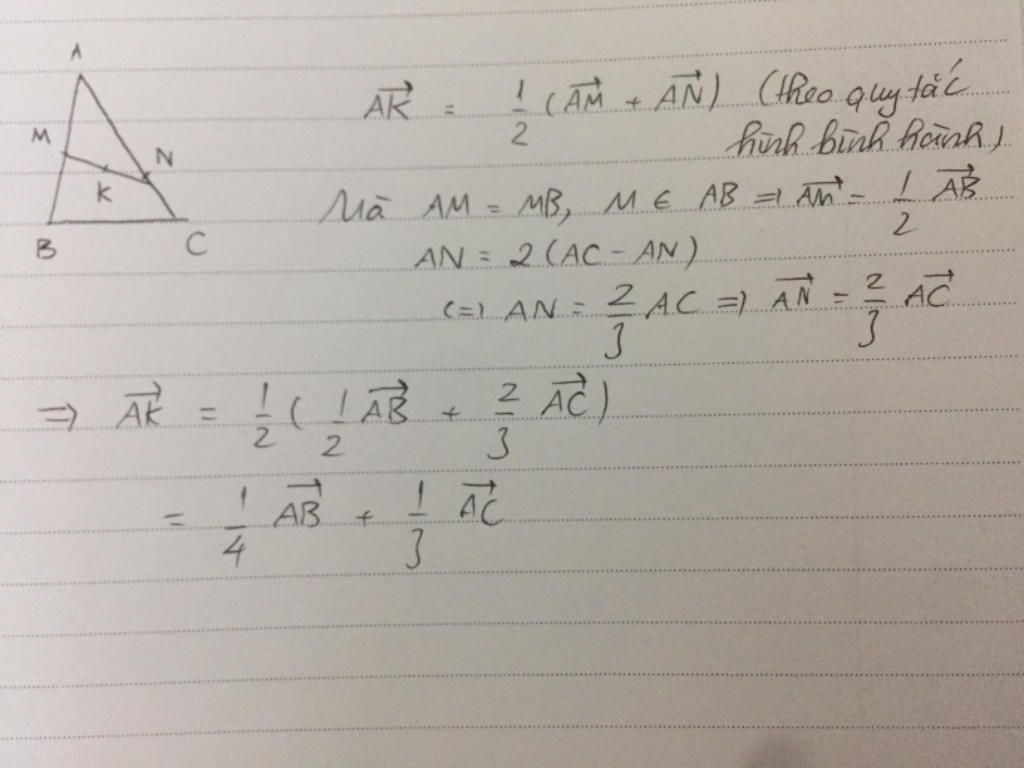 A
M
N
K
B
C
$\overrightarrow{AK} = \frac{1}{2}(\overrightarrow{AM} + \overrightarrow{AN})$ (theo quy tắc
hình bình hành)
Mà AM = MB, M ∈ AB ⇒ $\overrightarrow{AM} = \frac{1}{2}\overrightarrow{AB}$
AN = 2(AC - AN)
(=) AN = $\frac{2}{3}$ AC ⇒ $\overrightarrow{AN} = \frac{2}{3}\overrightarrow{AC}$
⇒ $\overrightarrow{AK} = \frac{1}{2}(\frac{1}{2}\overrightarrow{AB} + \frac{2}{3}\overrightarrow{AC})$
$= \frac{1}{4}\overrightarrow{AB} + \frac{1}{3}\overrightarrow{AC}$